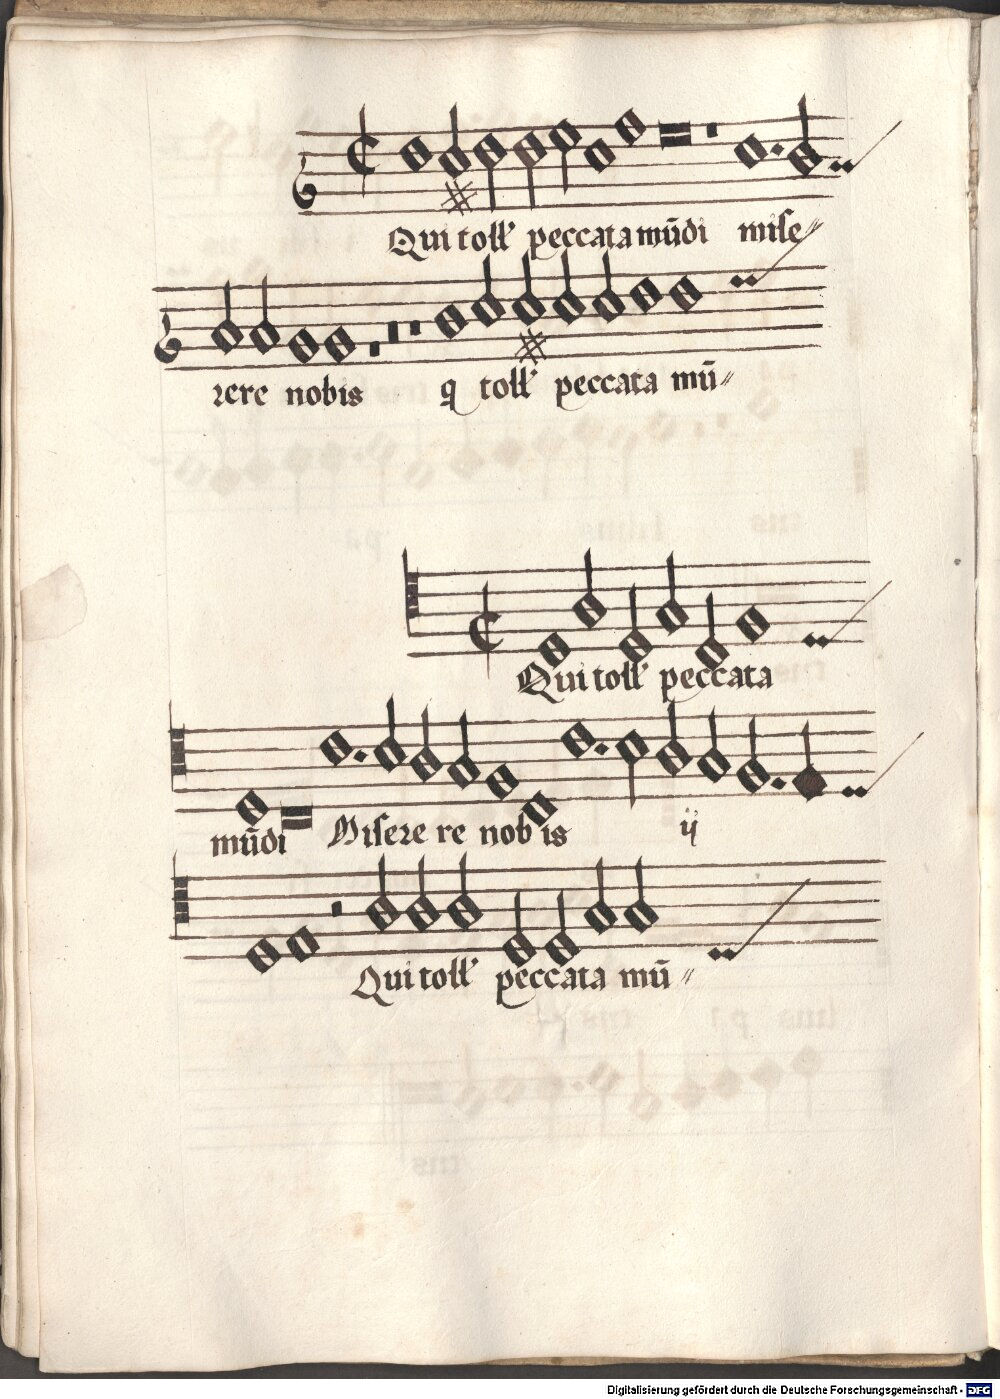 Qui toll peccata mūdi mise
rere nobis q toll peccata mū
Qui toll peccata
mūdi Misere re nob is ij
Qui toll peccata mū
Digitalisierung gefördert durch die Deutsche Forschungsgemeinschaft - DFG